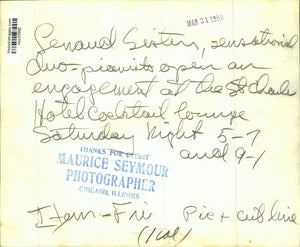 MAR 31 1950
Renaud Sisters, sensational
duo-pianists open an
engagement at the St Charles
Hotel Cocktail lounge
Saturday Night 5-7
and 9-1
THANKS FOR CREDIT
MAURICE SEYMOUR
PHOTOGRAPHER
CHICAGO, ILLINOIS
Item - Fri Pic + cutline
(1 col)